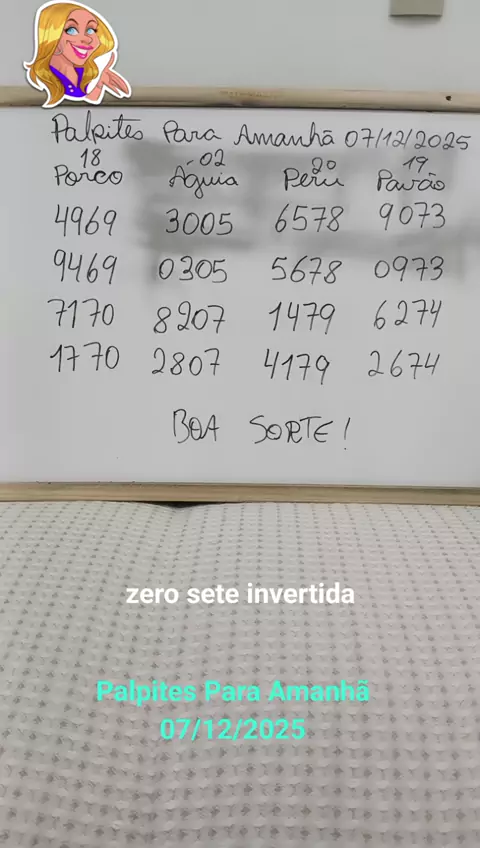 Palpites Para Amanhã 07/12/2025
18 02 20 19
Porco Águia Peru Pavão
4969 3005 6578 9073
9469 0305 5678 0973
7170 8207 1479 6274
1770 2807 4179 2674
BOA SORTE!
zero sete invertida
Palpites Para Amanhã
07/12/2025